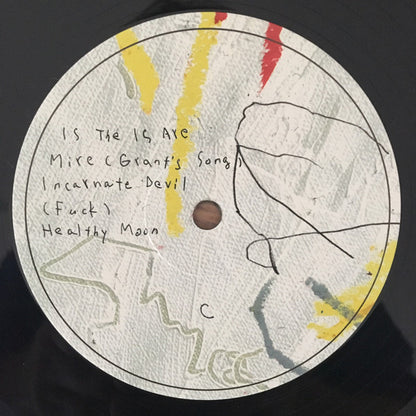 Is The Is Are
Mire (Grant's Song)
Incarnate Devil
(Fuck)
Healthy Moon
C